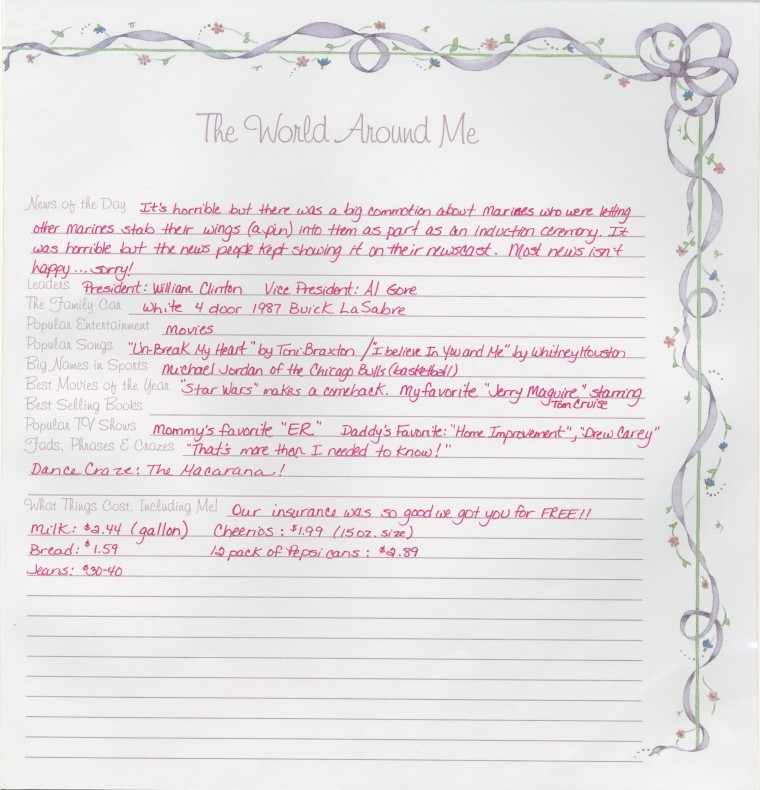 The World Around Me
News of the Day It's horrible but there was a big commotion about Marines who were letting
other marines stab their wings (a pin) into them as part as an induction ceremony. It
was horrible but the news people kept showing it on their newscast. Most news isn't
happy....sorry!
Leaders President: William Clinton Vice President: Al Gore
The Family Car White 4 door 1987 Buick LaSabre
Popular Entertainment movies
Popular Songs "Un-Break My Heart" by Toni Braxton / "I believe In You and Me" by Whitney Houston
Big Names in Sports Michael Jordan of the Chicago Bulls (basketball)
Best Movies of the Year "Star Wars" makes a comeback. My favorite "Jerry Maguire" starring
Tom Cruise
Best Selling Books
Popular TV Shows Mommy's favorite "ER" Daddy's Favorite: "Home Improvement", "Drew Carey"
Fads, Phrases & Crazes "That's more then I needed to know!"
Dance Craze: The Macarana!
What Things Cost, Including Me! Our insurance was so good we got you for FREE!!
Milk: $2.44 (gallon) Cheerios: $1.99 (15 oz. size)
Bread: $1.59 12 pack of Pepsi cans: $2.89
Jeans: $30-40